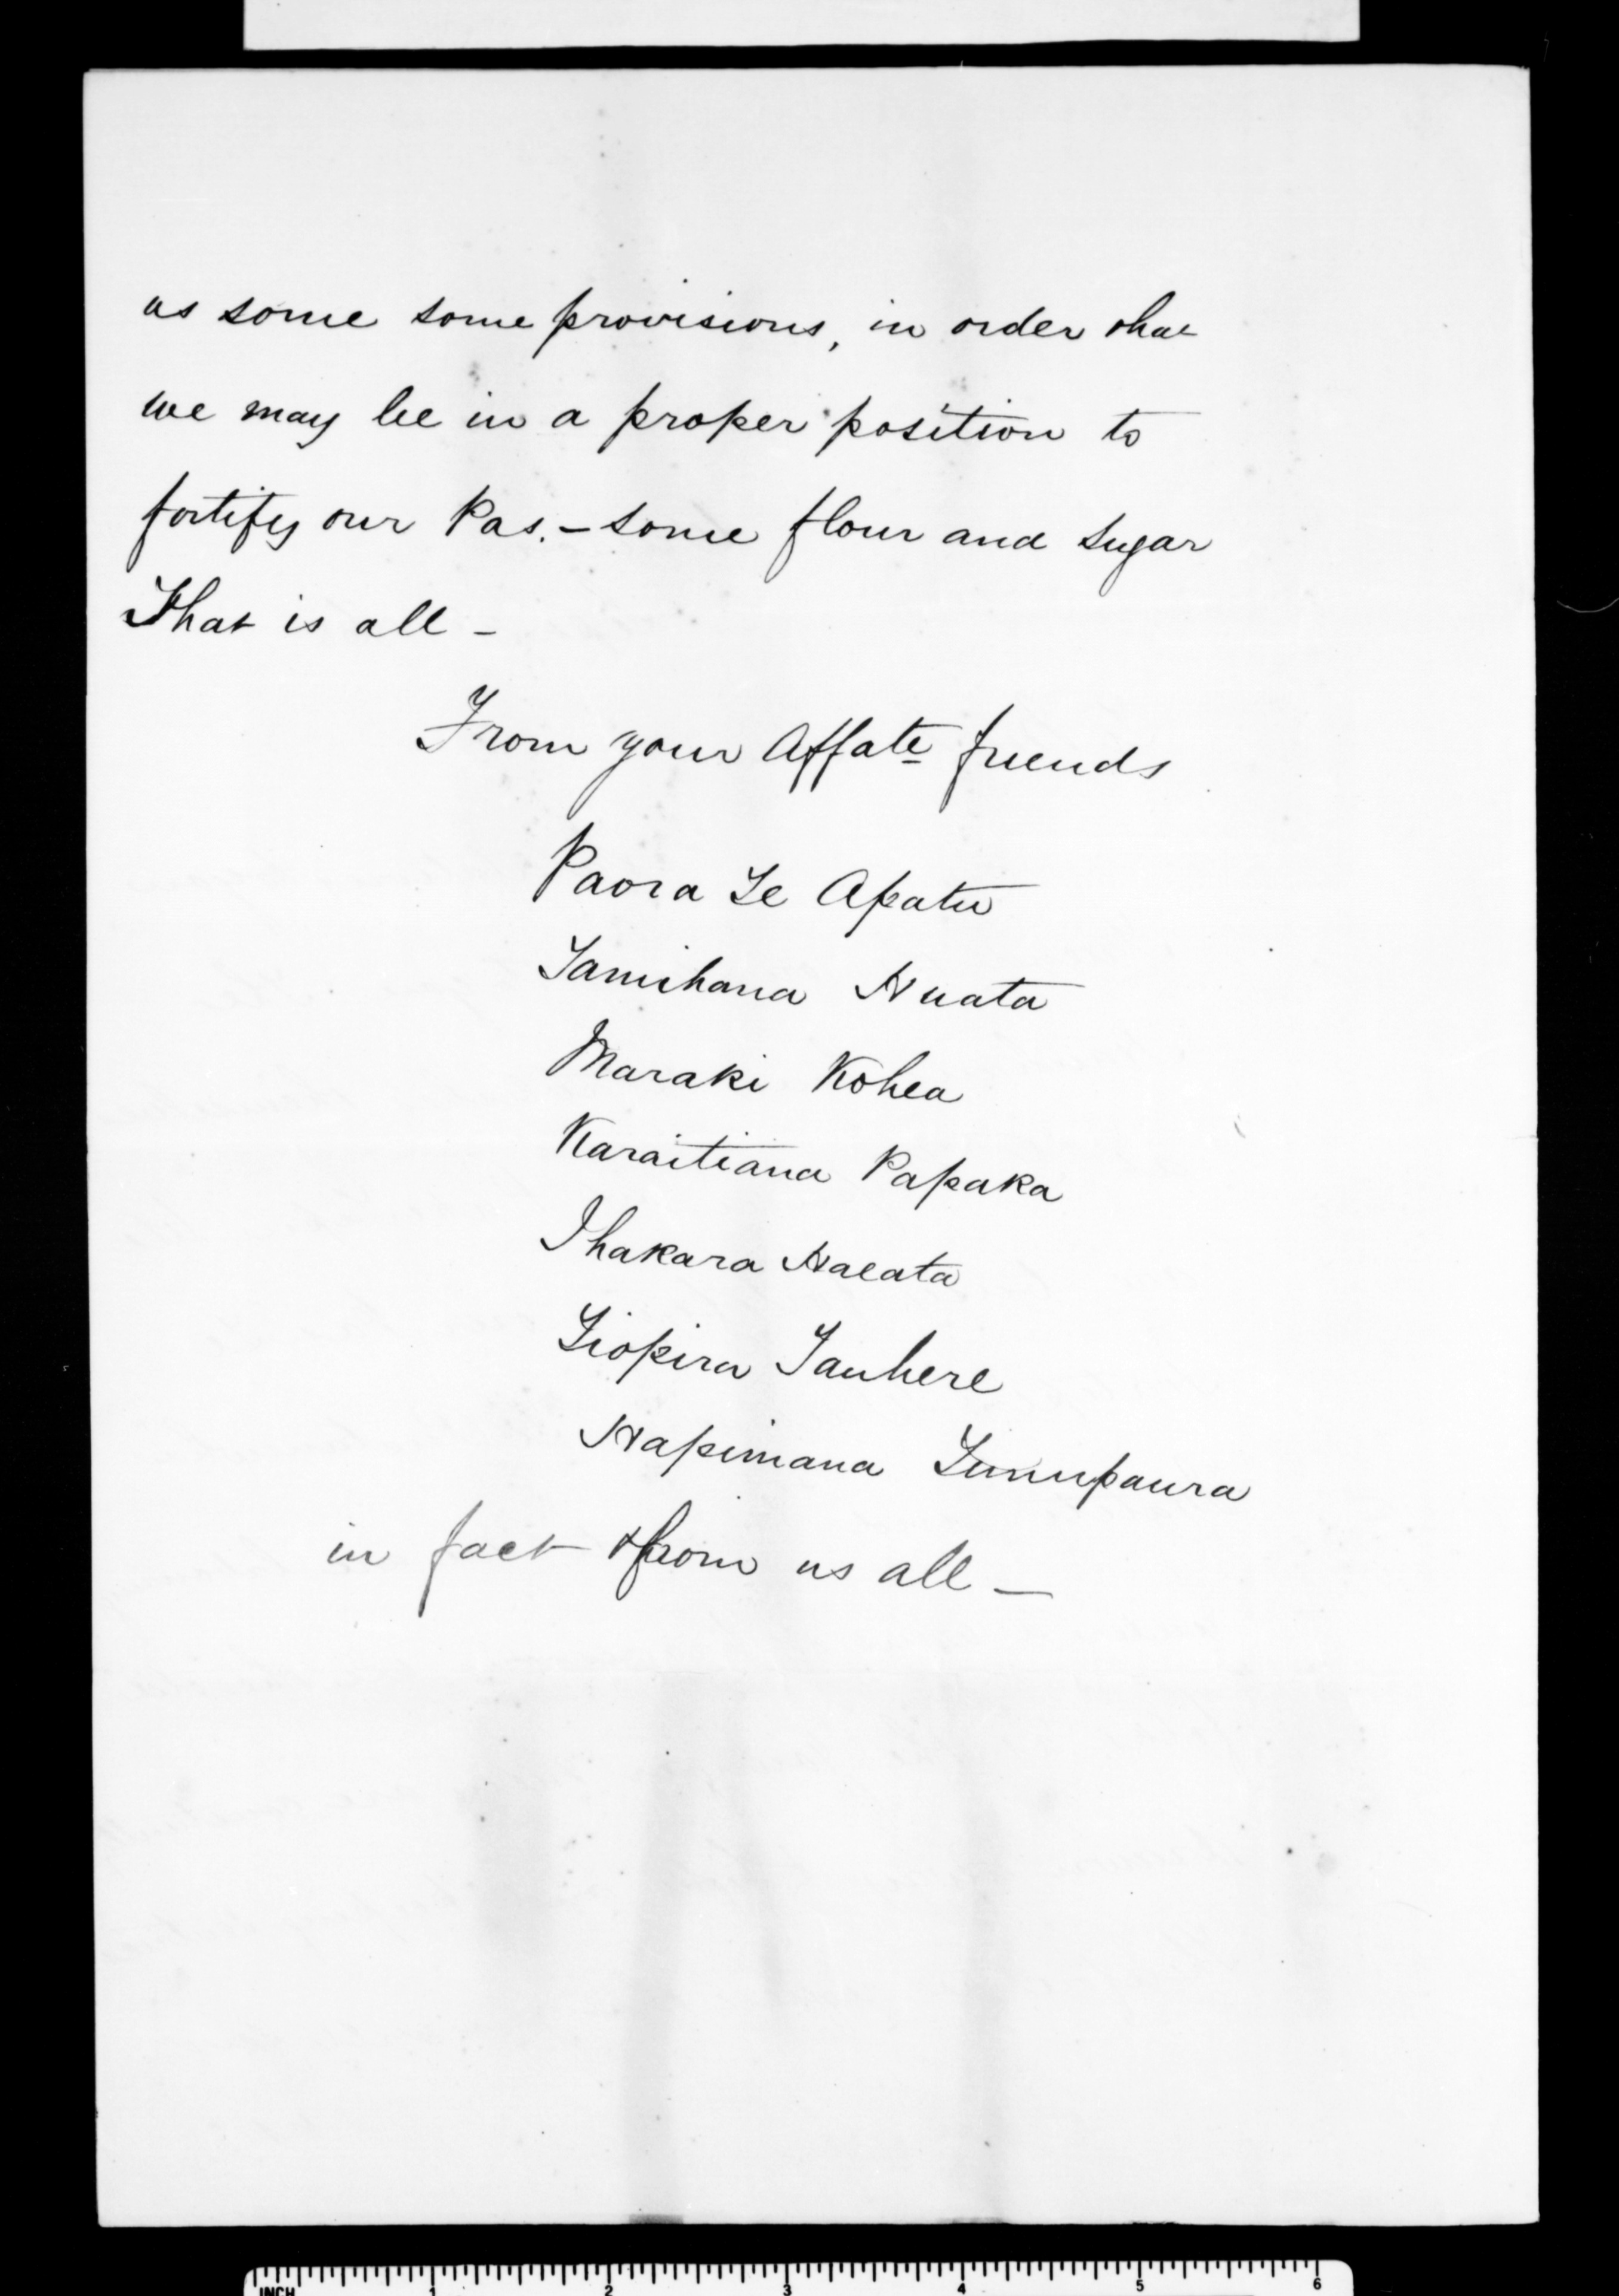 us some some provisions, in order that
we may be in a proper position to
fortify our Pas. – some flour and sugar
That is all –
From your Affate friends
Paora Te Apatu
Tamihana Huata
Maraki Kohea
Karaitiana Papaka
Ihakara Haeata
Tiopira Tauhere
Hapimana Tunupaura
in fact from us all –
INCH 1 2 3 4 5 6